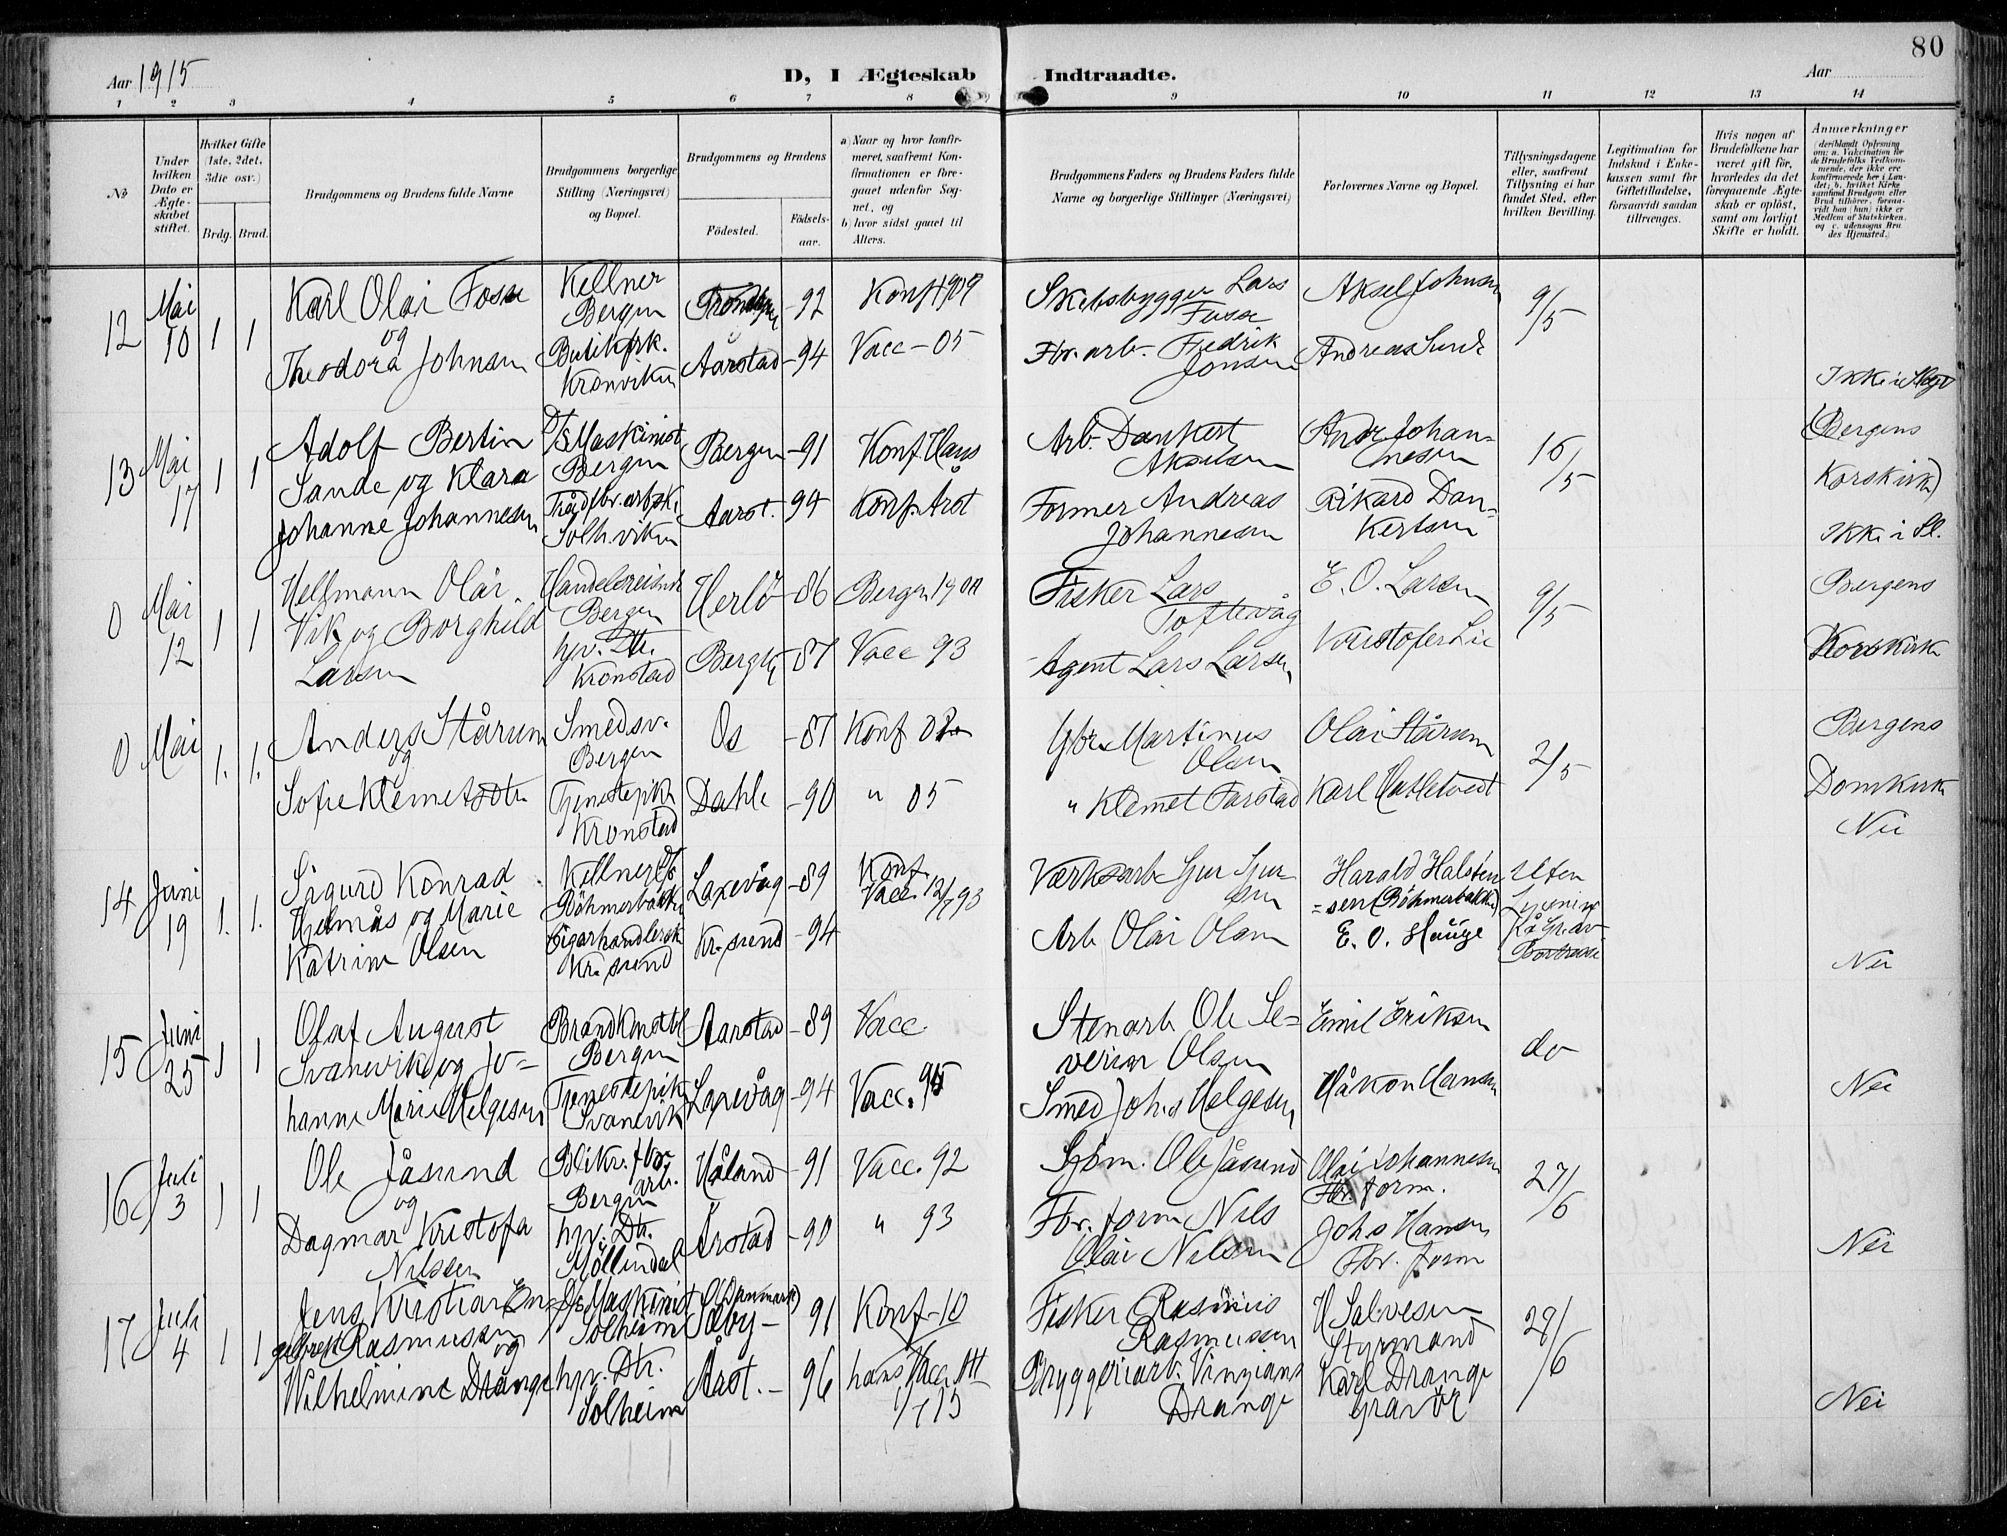 80
Aar 1915
D, I Ægteskab Indtraadte.
Aar
1 2 3 4 5 6 7 8 9 10 11 12 13 14
No
Under hvilken Dato er Ægteskabet stiftet.
Hvilket Gifte (1ste, 2det, 3die osv.)
Brdg. Brud.
Brudgommens og Brudens fulde Navne
Brudgommens borgerlige Stilling (Næringsvei) og Bopæl.
Brudgommens og Brudens
Fødested. Fødselsaar.
a) Naar og hvor konfirmeret, saafremt Konfirmationen er foregaaet udenfor Sognet, og
b) hvor sidst gaaet til Alters.
Brudgommens Faders og Brudens Faders fulde Navne og borgerlige Stillinger (Næringsvei)
Forlovernes Navne og Bopæl.
Tillysningsdagene eller, saafremt Tillysning ei har fundet Sted, efter hvilken Bevilling.
Legitimation for Indskud i Enkekassen samt for Giftetilladelse, forsaavidt saadan tiltrænges.
Hvis nogen af Brudefolkene har været gift før, hvorledes da det foregaaende Ægteskab er opløst, samt om lovligt Skifte er holdt.
Anmerkninger (deriblandt Oplysning om: a. Vakcination for de Brudefolks Vedkommende, der ikke ere konfirmerede her i Landet; b. hvilket Kirkesamfund Brudgom eller Brud tilhører, forsaavidt han (hun) ikke er Medlem af Statskirken, og c. udensogns Brudes Hjemsted.)
12 Mai 10 1 1 Karl Olai Fosse og Theodora Johnsen
Kellner Bergen
Butikfrk. Kronviken
-92 Konf 1909
Aarstad -94 Vacc - 05
Skibsbygger Lars Fosse
Fbr. arb. Fredrik Jonsen
Aksel Johnsen
Andreas Lunde
9/5
Ikke i Slegt
(Bergens Korskirke)
13 Mai 17 1 1 Adolf Bertin Sande og Klara Johanne Johannesen
D/S Maskinist Bergen
Trådfbr. arbsk. Solh.viken
Bergen -91 Konf. Hans
Aarst. 94 Konf. Arst
Arb. Dankert
Former Andreas Johannesen
Andr. Johannesen
Rikard Dankertsen
16/5
Ikke i Sl.
0 Mai 12 1 1 Helfmann Olai Vik og Borghild Larsen
Handelsreisende Bergen
hjv. Dtr. Kronstad
Herlø -86 Bergen 1900
Bergen -87 Vacc 93
Fisker Lars Toftevåg
Agent Lars Larsen
E. O. Larsen
Kristofer Lie
9/5
Bergens Korskirke
0 Mai 1. 1. Anders Stårum og Sofie Klemetsdtr.
Smedsv. Bergen
Tjenestepike Kronstad
Os -87 Konf 02
Dahle -90 " 05
Gbr. Martinus Olsen
" Klemet Farstad
Olai Stårum
Karl Hatletvedt
2/5
Bergens Domkirke
Nei
14 Juni 19 1. 1. Sigurd Konrad Hjelmås og Marie Katrine Olsen
Kellner Böhmerbakken
Cigarhandlersk. Kr.sund
Laxevåg -89 Konf. Vacc. 12/7 93
Kr.sund -94
Værksarb. Sjur Sjursen
Arb. Olai Olsen
Harald Halstensen (Böhmerbakken)
E. O. Hauge
Uten Lysning
Nei
15 Juni 25 1 1 Olaf August Svanevik og Johanne Marie Helgesen
Brandkonstbl. Bergen
Tjenestepike Svanevik
Aarstad -89 Vacc.
Laxevåg -94 Vacc. 95
Stenarb. Ole Severin Olsen
Smed Johs Helgesen
Emil Eriksen
Håkon Hansen
do
Nei
16 Juli 3 1 1 Ole Jåsund og Dagmar Kristofa Nilsen
Blikv. fbr. arb. Bergen
hjv. Dtr. Möllendal
Håland -91 Vacc. 92
Årstad -90 " 93
Sjöm. Ole Jåsund
Fbr. form Nils Olai Nilsen
Olai Johannesen Fbr. form.
Johs Hansen Fbr. form
27/6
Nei
17 Juli 4 1 1 Jens Kristian Engelbrekt Rasmussen og Wilhelmine Drange
D/S Maskinist Solheim
hjv. Dtr. Solheim
(Danmark) Säby - 91 Konf - 10
Årst. - 96 hans Vacc. Att 1/7 15
Fisker Rasmus Rasmussen
Bryggeriarb. Vinzians Drange
H Salvesen Styrmand
Karl Drange Gravör
29/6
Nei